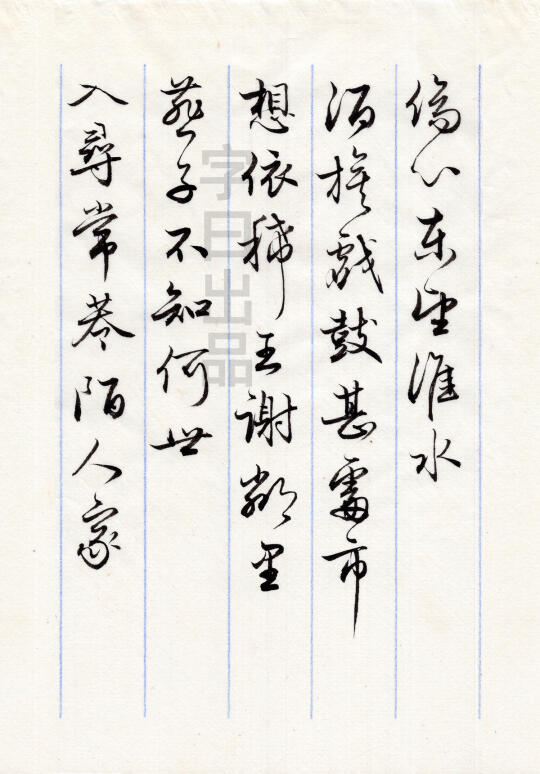 傷心东望淮水
酒旗戲鼓甚處市
想依稀王謝鄰里
燕子不知何世
入尋常巷陌人家
字曰出品